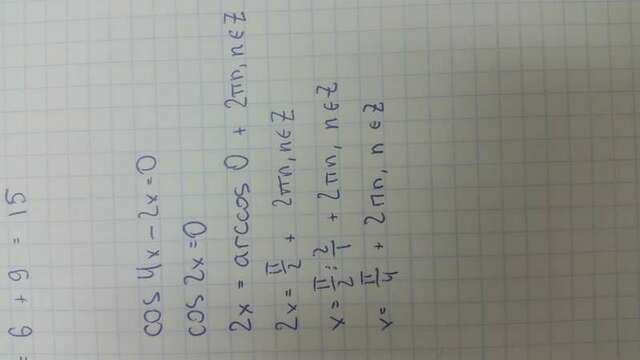 = 6 + 9 = 15
cos 4x - 2x = 0
cos 2x = 0
2x = arccos 0 + 2πn, n ∈ Z
2x = π/2 + 2πn, n ∈ Z
x = π/2 : 2/1 + 2πn, n ∈ Z
x = π/4 + 2πn, n ∈ Z